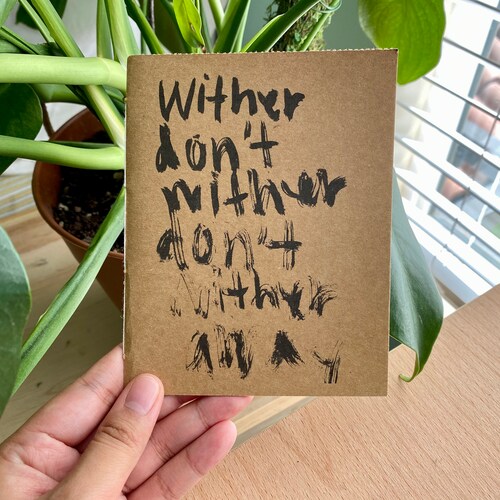 Wither
don't
wither
don't
wither
away